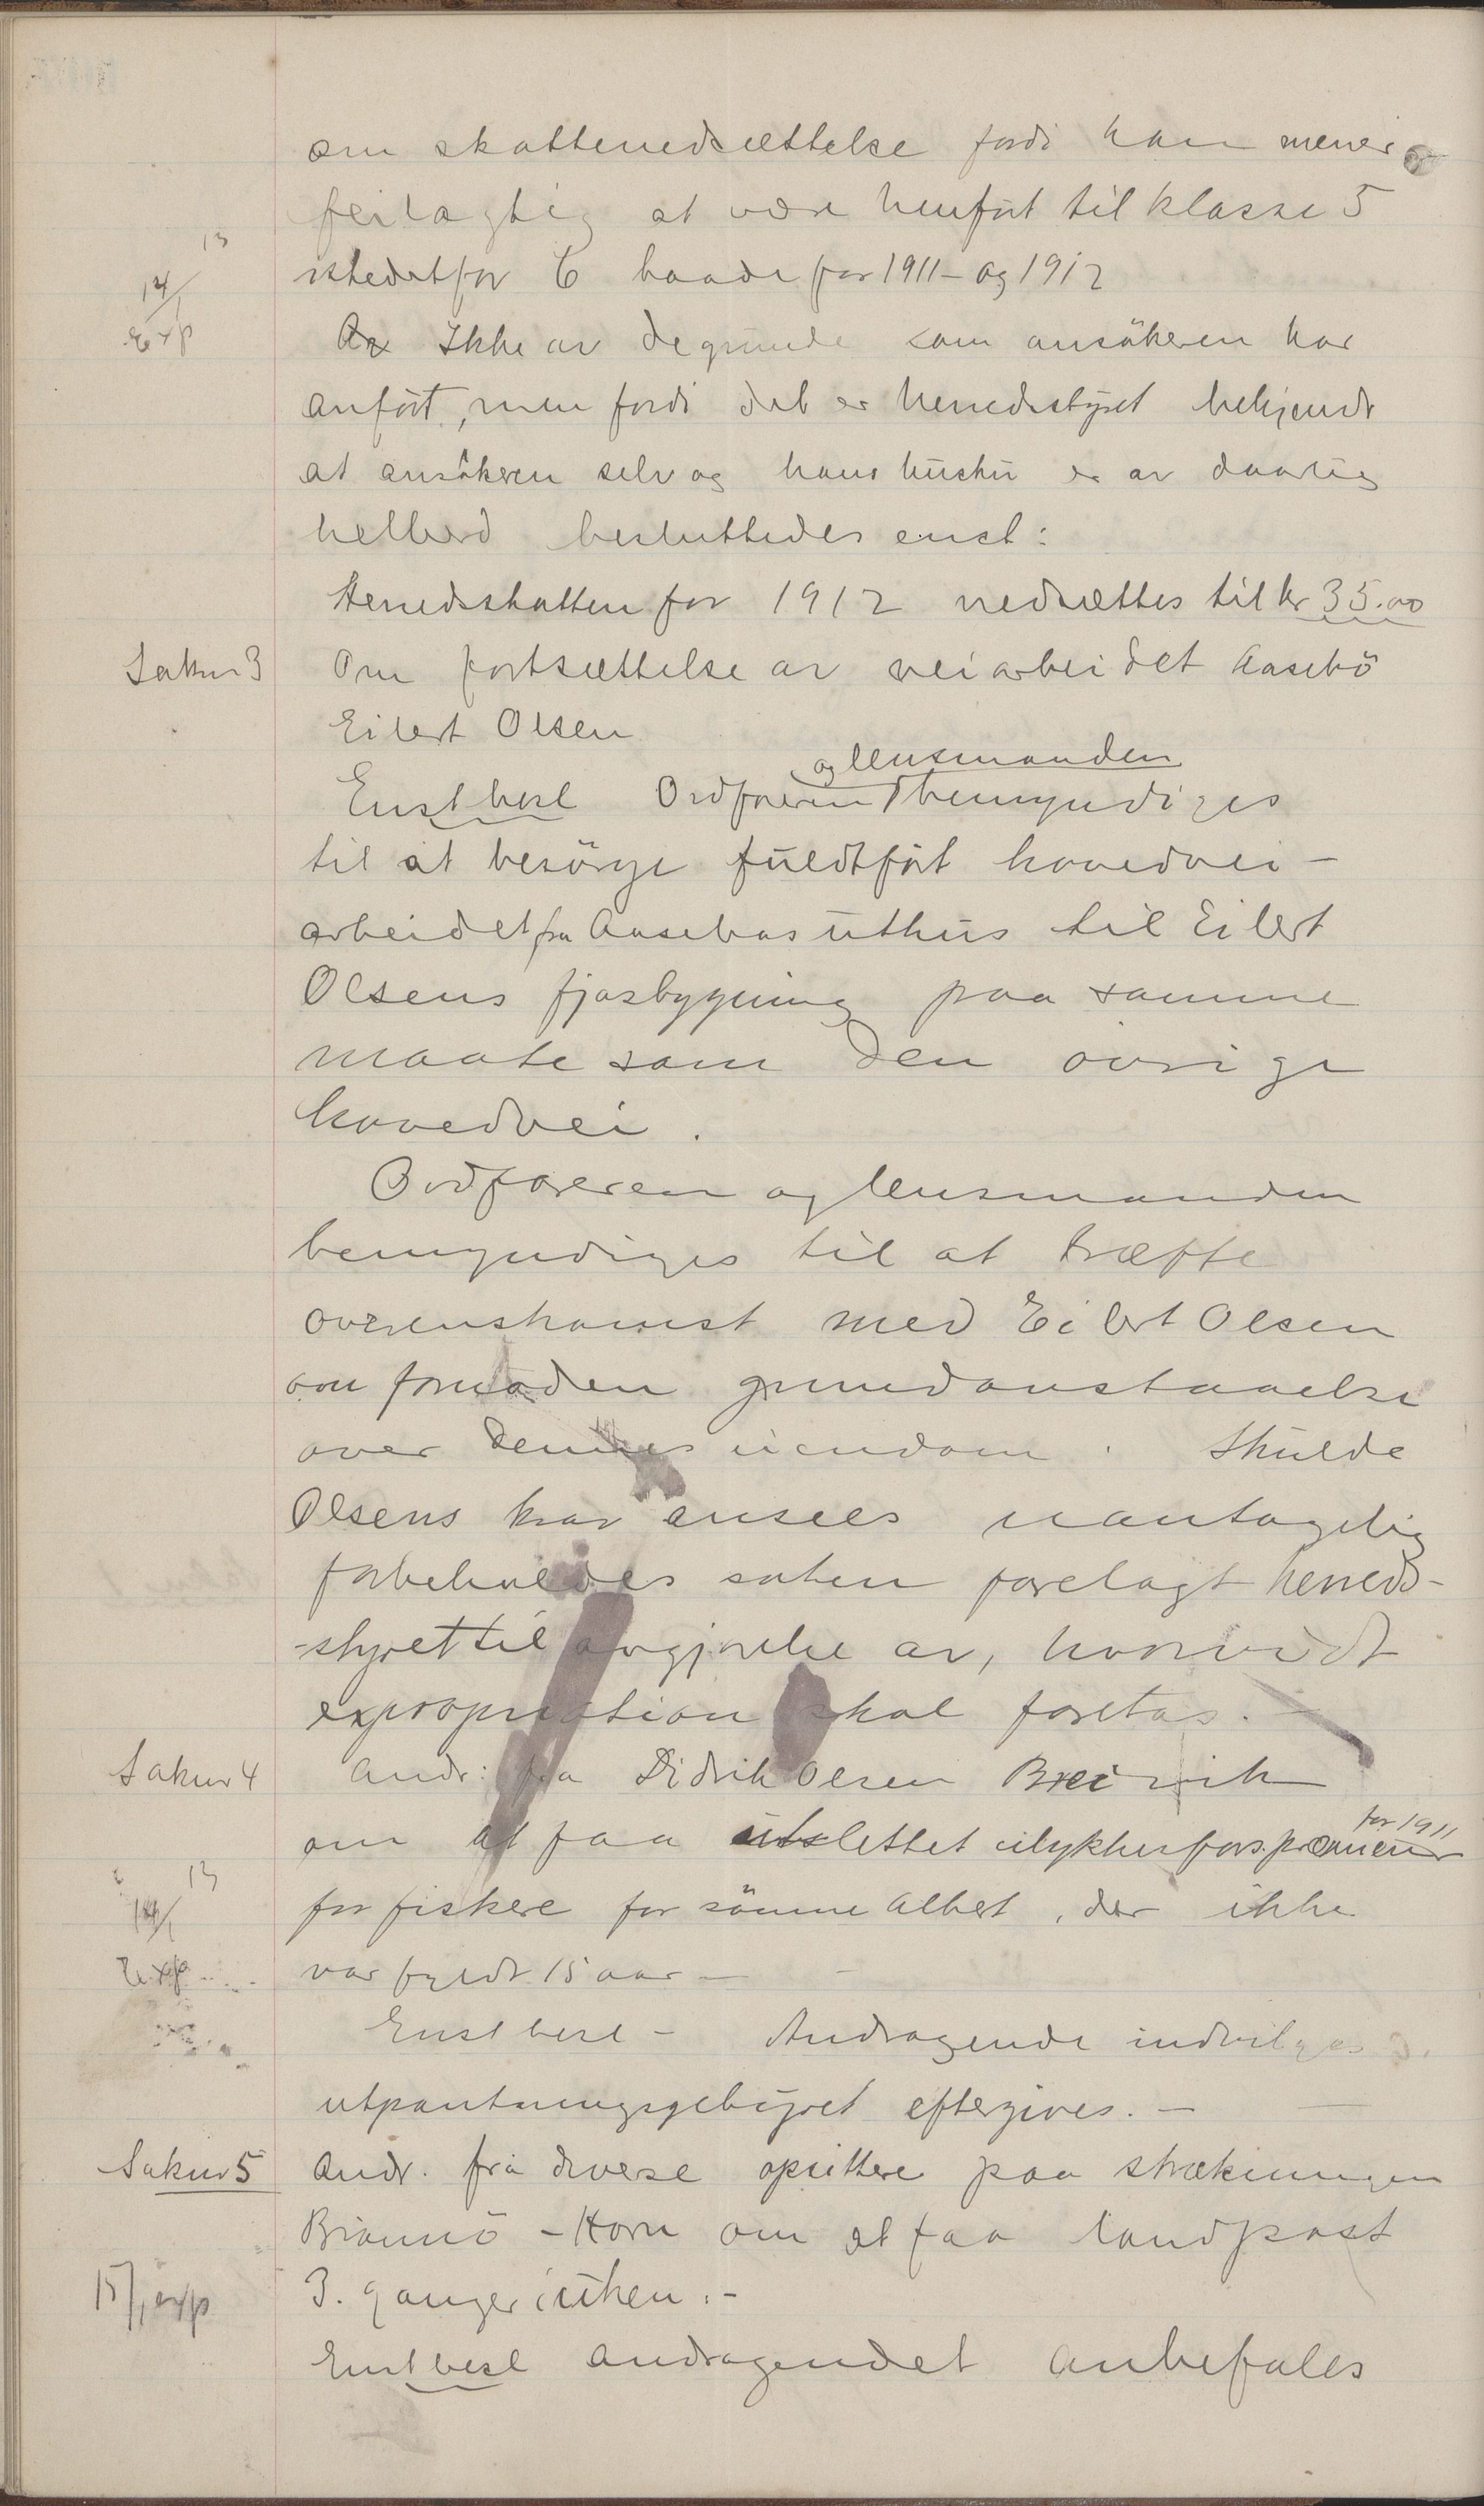 om skattenedsættelse fordi han mener
feilagtig at være henfört til klasse 5
istedetfor 6 baade for 1911 - og 1912
14/1 13
Exp
Ikke av de grunde som ansökeren har
anfört, men fordi det er herredsstyret bekjendt
at ansökeren selv og hans hustru er av daarlig
helbred besluttedes enst:
Herredsskatten for 1912 nedsættes til kr 35.00
Sak nr 3
Om fortsættelse av veiarbeidet Aasebö
Eilert Olsen
og lensmanden
Enst besl Ordføreren bemyndiges
til at besörge fuldfört hovedvei-
arbeidet fra Aasebøs uthus til Eilert
Olsens fjøsbygning paa samme
maate som den övrige
hovedvei.
Ordføreren og lensmanden
bemyndiges til at træffe
overenskomst med Eilert Olsen
om fornøden grundavstaaelse
over dennes eiendom. Skulde
Olsens krav ansees uantagelig
forbeholdes saken forelagt herreds-
-styret til avgjørelse av, hvorvidt
expropriation skal foretas.
Sak nr 4
Andr: fra Didrik Olsen Breivik
om at faa utslettet ulykkesfors.præmier
for 1911
for fiskere for sönne Albert, der ikke
14/1 13
Exp
var fyldt 15 aar -
Enst besl - Andragende indvilges
utpantningsgebyret eftergives. -
Sak nr 5
Andr. fra diverse opsittere paa strækningen
Brönnö - Horn om at faa landpost
15/1 exp
3. ganger i uken. -
Enst besl andragendet anbefales